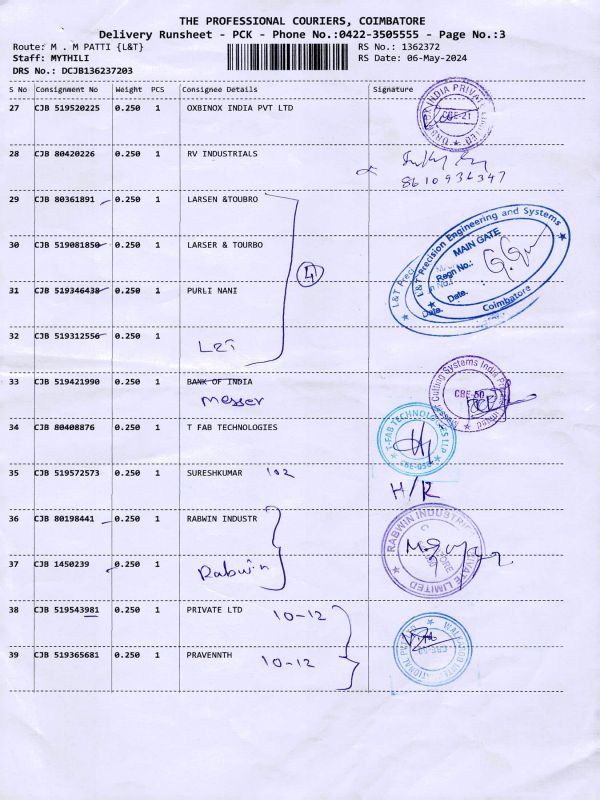 THE PROFESSIONAL COURIERS, COIMBATORE
Delivery Runsheet - PCK - Phone No.:0422-3505555 - Page No.:3
Route: M . M PATTI {L&T}
RS No.: 1362372
Staff: MYTHILI
RS Date: 06-May-2024
DRS No.: DCJB136237203
S No Consignment No Weight PCS Consignee Details Signature
27 CJB 519520225 0.250 1 OXBINOX INDIA PVT LTD
INDIA PRIVATE LIMITED
CBE-21
28 CJB 80420226 0.250 1 RV INDUSTRIALS
8610936347
29 CJB 80361891 0.250 1 LARSEN &TOUBRO
30 CJB 519081850 0.250 1 LARSER & TOURBO
4
L&T Precision Engineering and Systems
MAIN GATE
Regn No.:
Date.
Coimbatore
31 CJB 519346438 0.250 1 PURLI NANI
32 CJB 519312556 0.250 1
L&T
33 CJB 519421990 0.250 1 BANK OF INDIA
Messer
Messer Cutting Systems India Private Limited
CBE-50
34 CJB 80408876 0.250 1 T FAB TECHNOLOGIES
T-FAB TECHNOLOGIES LLP
CBE-050
35 CJB 519572573 0.250 1 SURESHKUMAR 102
H/R
36 CJB 80198441 0.250 1 RABWIN INDUSTR
37 CJB 1450239 0.250 1
Rabwin
RABWIN INDUSTRIES PRIVATE LIMITED
38 CJB 519543981 0.250 1 PRIVATE LTD 10-12
39 CJB 519365681 0.250 1 PRAVENNTH 10-12